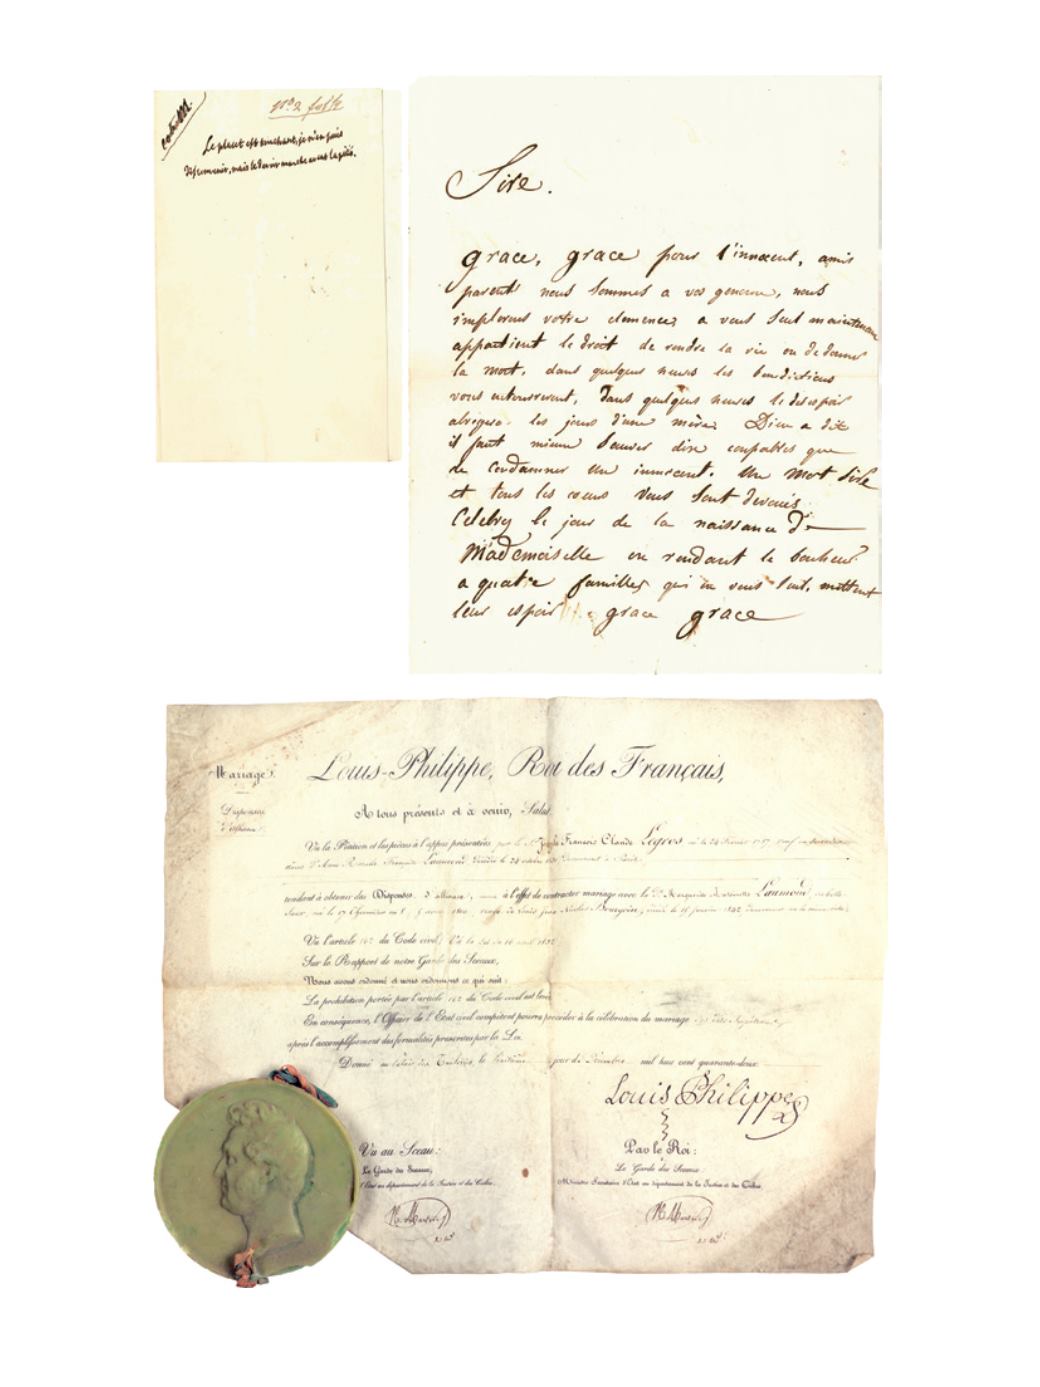 coté M.
n.º 2
Le placet est touchant, je n'en puis
disconvenir, mais le devoir marche avant la pitié.
Sire.
grace, grace pour l'innocent, amis
parents nous sommes a vos genoux, nous
implorons votre clemence, a vous seul maintenant
appartient le droit de rendre la vie ou de donner
la mort, dans quelques heures les benedictions
vous entoureront, dans quelques heures le desespoir
abregera les jours d'une mère; Dieu a dit
il faut mieux sauver dix coupables que
de condamner un innocent. Un mot Sire
et tous les cœurs vous sont devoués
Celebrez le jour de la naissance de
Mademoiselle en rendant le bonheur
a quatre familles qui en vous seul, mettent
leur espoir grace grace
Mariage.
Dispense
d'alliance.
Louis-Philippe, Roi des Français,
A tous présents et à venir, Salut.
Vu la Pétition et les pièces à l'appui présentées par le Sr Joseph François Claude Legros né le 24 Février 1787, veuf en
dame Françoise Laumond décédée le 24 octobre demeurant à Paris.
tendant à obtenir des Dispenses d'alliance, à l'effet de contracter mariage avec la De Marguerite Laumond, sa belle
Sœur, née le 17 veuve de Louis Jean Nicolas Bourgoin, décédé le 18 janvier 1842
Vu l'article 162 du Code civil, Vu la Loi du 16 avril 1832;
Sur le Rapport de notre Garde des Sceaux,
Nous avons ordonné et nous ordonnons ce qui suit:
La prohibition portée par l'article 162 du Code civil est levée
En conséquence, l'Officier de l'Etat civil compétent pourra procéder à la célébration du mariage
après l'accomplissement des formalités prescrites par la Loi.
Donné au Palais des Tuileries, le jour de Décembre mil huit cent quarante-deux.
Louis Philippe
Vu au Sceau:
Le Garde des Sceaux,
d'Etat au département de la Justice et des Cultes.
Par le Roi:
Le Garde des Sceaux
Ministre Secrétaire d'Etat au département de la Justice et des Cultes.